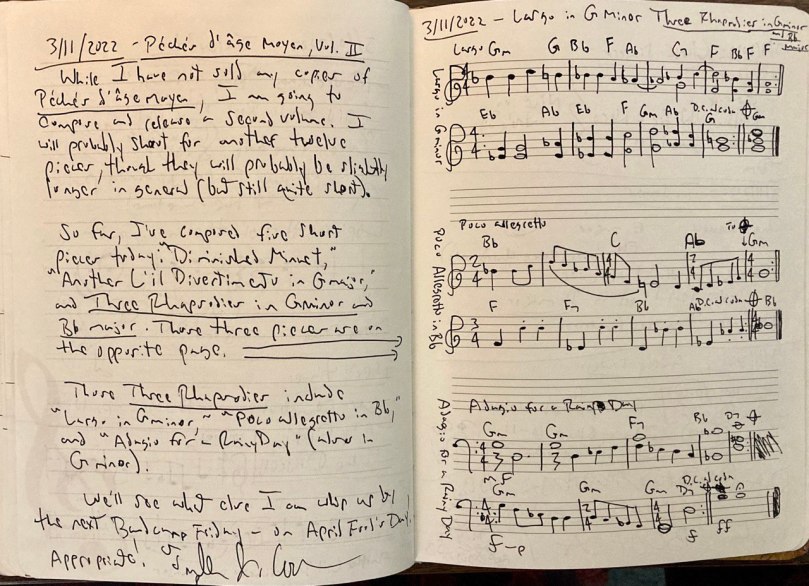 3/11/2022 - Péchés d'âge moyen, Vol. II
While I have not sold any copies of
Péchés d'âge moyen, I am going to
compose and release a second volume. I
will probably shoot for another twelve
pieces, though they will probably be slightly
longer in general (but still quite short).
So far, I've composed five short
pieces today: "Diminished Minuet,"
"Another L'il Divertimento in G major,"
and Three Rhapsodies in G minor and
Bb major. Those three pieces are on
the opposite page.
Those Three Rhapsodies include
"Largo in G minor," "Poco allegretto in Bb,"
and "Adagio for a Rainy Day" (also in
G minor).
We'll see what else I can whip up by
the next Bandcamp Friday - on April Fool's Day.
Appropriate!
3/11/2022 - Largo in G Minor Three Rhapsodies in G minor
and Bb
major
Largo Gm G Bb F Ab C7 F Bb F F
Largo in G minor
Eb Ab Eb F Gm Ab D.C. al coda G Gm
Poco allegretto
To
Bb C Ab Gm
Poco Allegretto in Bb
F F7 Bb Ab D.C. al coda Bb
Adagio for a Rainy Day
Gm Gm F7 Bb D7
Adagio for a Rainy Day
mf
D.C. al coda
Gm Gm Gm D7
f-p f ff